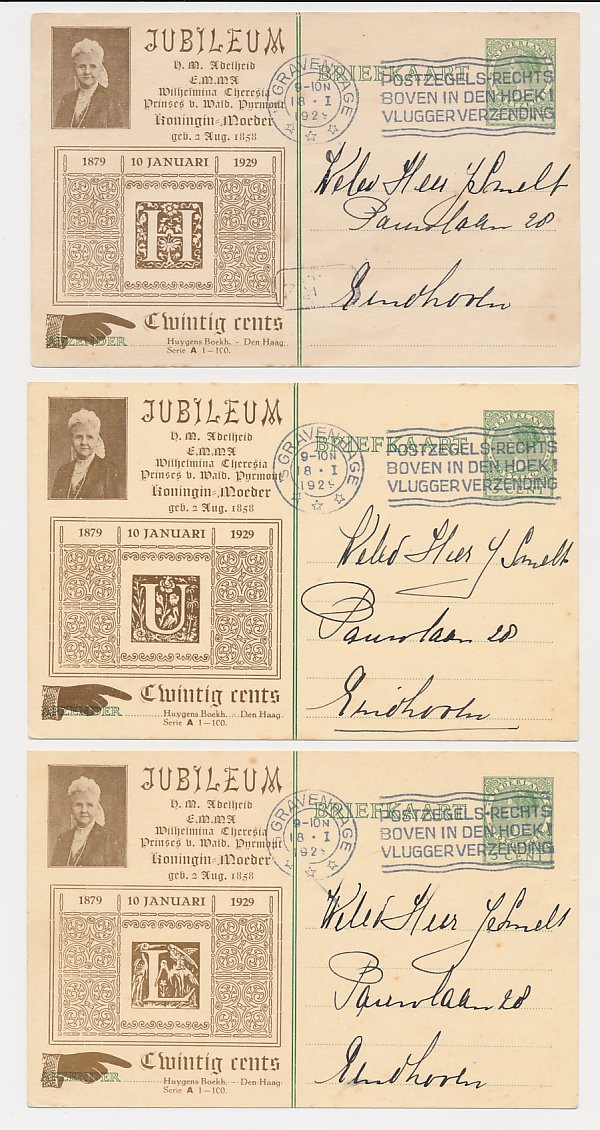 JUBILEUM
H. M. Adelheid
EMMA
Wilhelmina Theresia
Prinses v. Wald. Pyrmont
Koningin-Moeder
geb. 2 Aug. 1858
1879 10 JANUARI 1929
H
Twintig cents
AFZENDER
Huygens Boekh. - Den Haag.
Serie A 1-100.
BRIEFKAART
'S GRAVENHAGE
9-10N
18 · I
192
POSTZEGELS RECHTS
BOVEN IN DEN HOEK!
VLUGGER VERZENDING
NEDERLAND
Heer J Smelt
Pauwlaan 28
Eindhoven
JUBILEUM
H. M. Adelheid
EMMA
Wilhelmina Theresia
Prinses v. Wald. Pyrmont
Koningin-Moeder
geb. 2 Aug. 1858
1879 10 JANUARI 1929
U
Twintig cents
AFZENDER
Huygens Boekh. - Den Haag.
Serie A 1-100.
BRIEFKAART
'S GRAVENHAGE
9-10N
18 · I
1929
POSTZEGELS RECHTS
BOVEN IN DEN HOEK!
VLUGGER VERZENDING
NEDERLAND
5 CENT
Heer J Smelt
Pauwlaan 28
Eindhoven
JUBILEUM
H. M. Adelheid
EMMA
Wilhelmina Theresia
Prinses v. Wald. Pyrmont
Koningin-Moeder
geb. 2 Aug. 1858
1879 10 JANUARI 1929
L
Twintig cents
AFZENDER
Huygens Boekh. - Den Haag.
Serie A 1-100.
BRIEFKAART
'S GRAVENHAGE
9-10N
18 · I
192
POSTZEGELS RECHTS
BOVEN IN DEN HOEK!
VLUGGER VERZENDING
NEDERLAND
5 CENT
Heer J Smelt
Pauwlaan 28
Eindhoven